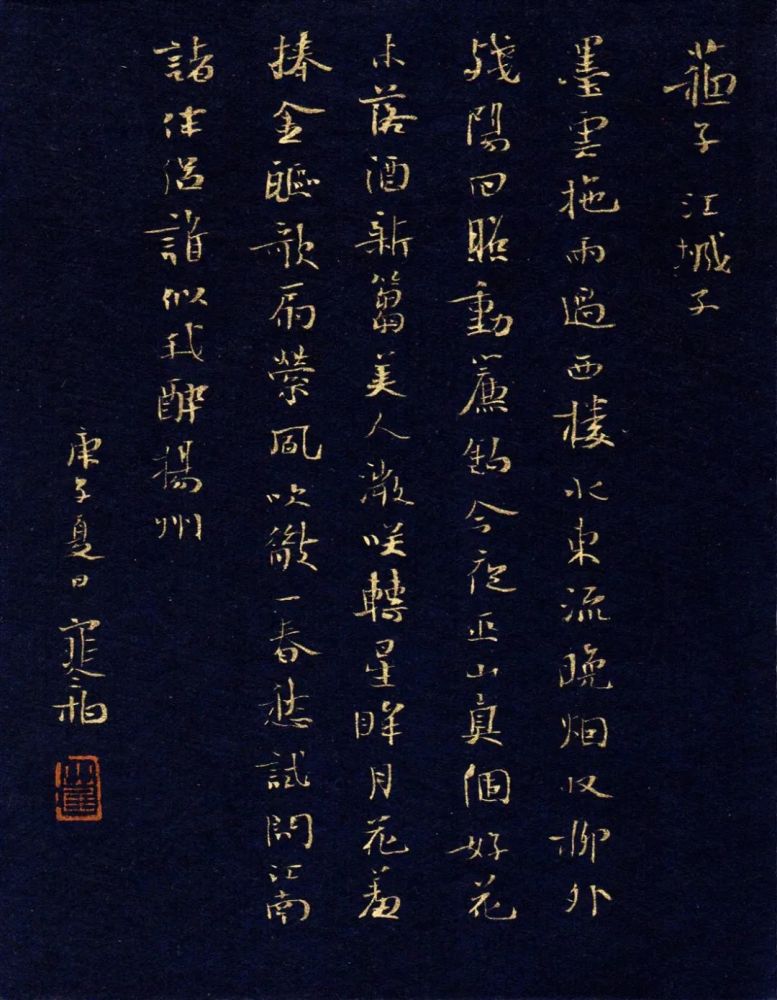 蘇子 江城子
墨雲拖雨過西樓水東流晚烟收柳外
殘陽回照動簾鈎今夜巫山真個好花
未落酒新篘美人微咲轉星眸月花羞
捧金甌歌扇縈風吹散一春愁試問江南
諸伴侶誰似我醉揚州
庚子夏日